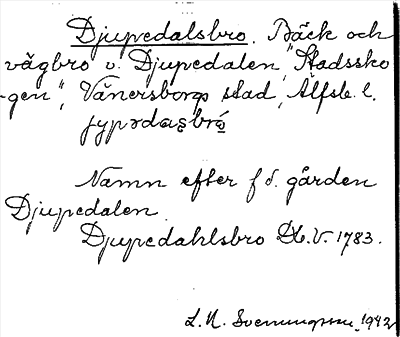 Djupedalsbro. Bäck och
vägbro v. Djupedalen, "Stadssko-
gen", Vänersborgs stad, Älfsb. l.
jypədaʂbró
Namn efter f.d. gården
Djupedalen.
Djupedahlsbro Db.V. 1783.
L. N. Svenungsson 1942